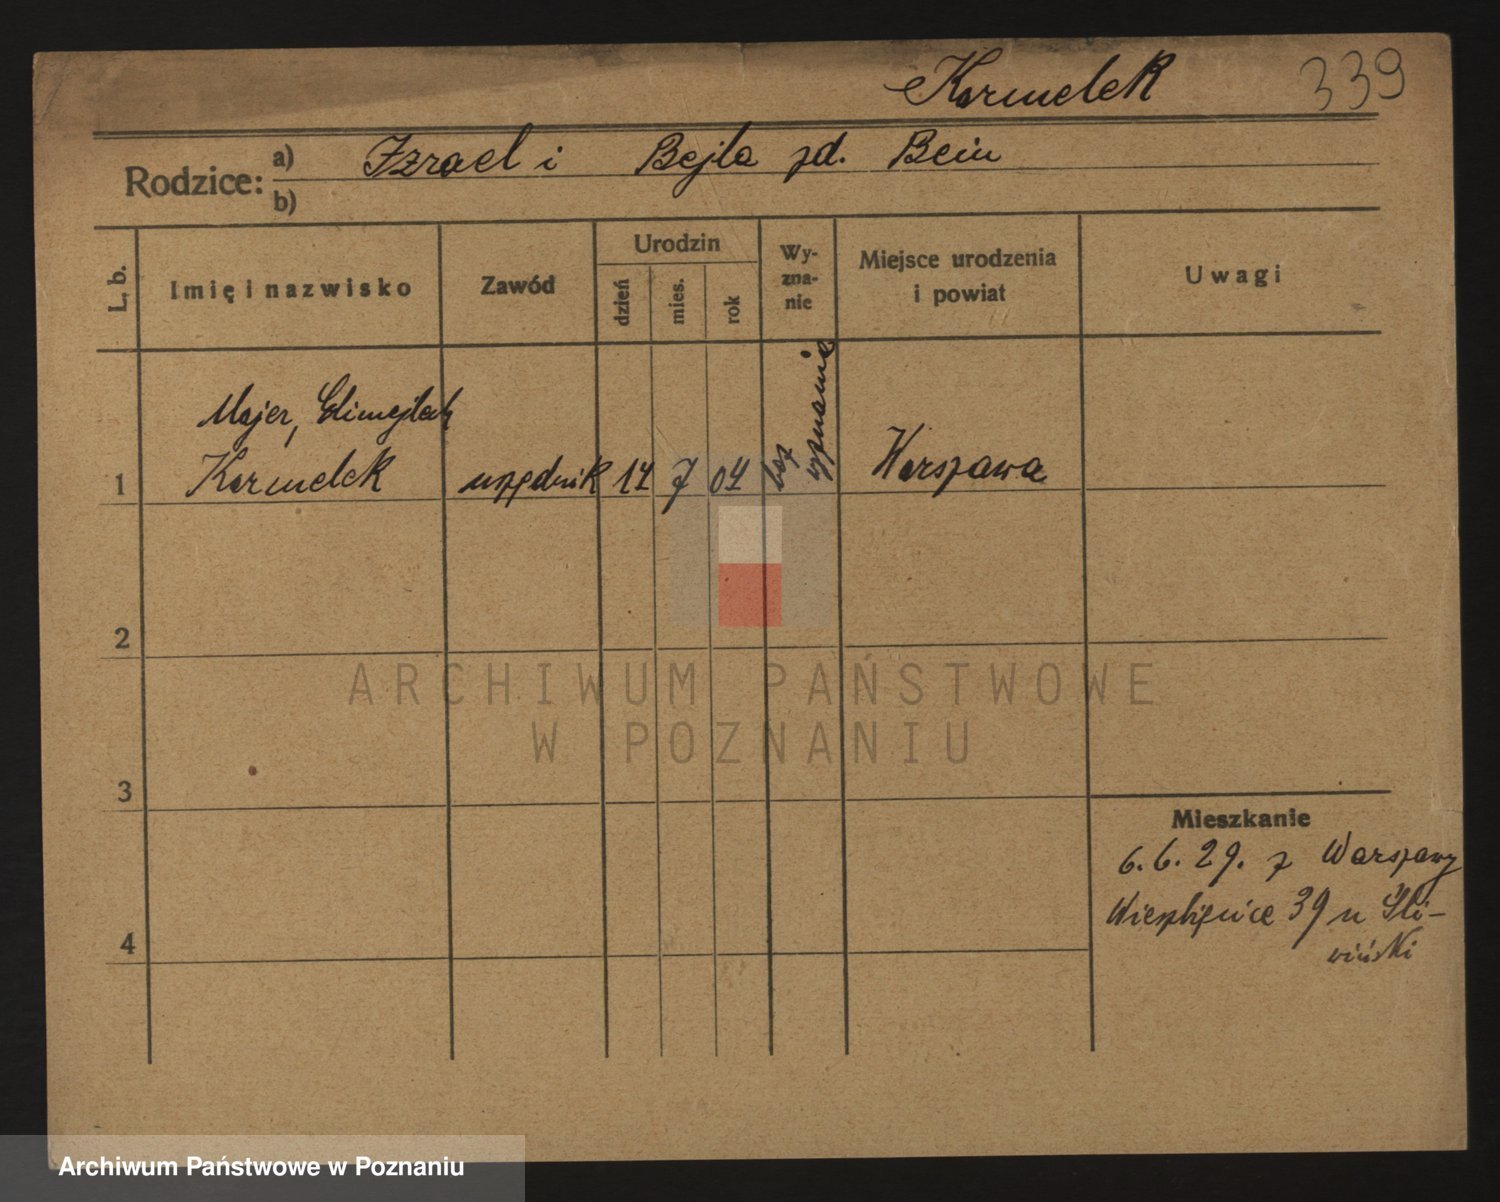 Karmelek 339
Rodzice: a) Izrael i Bejla zd. Bein
b)
L. b.
Imię i nazwisko
Zawód
Urodzin
dzień
mies.
rok
Wy-
zna-
nie
Miejsce urodzenia
i powiat
Uwagi
Majer, Elimejlech
1 Karmelek urzędnik 14 7 04 bez wyznania Warszawa
2
ARCHIWUM PAŃSTWOWE
W POZNANIU
3
Mieszkanie
6.6.29. z Warszawy
39 u Śli-
wiński
4
Archiwum Państwowe w Poznaniu